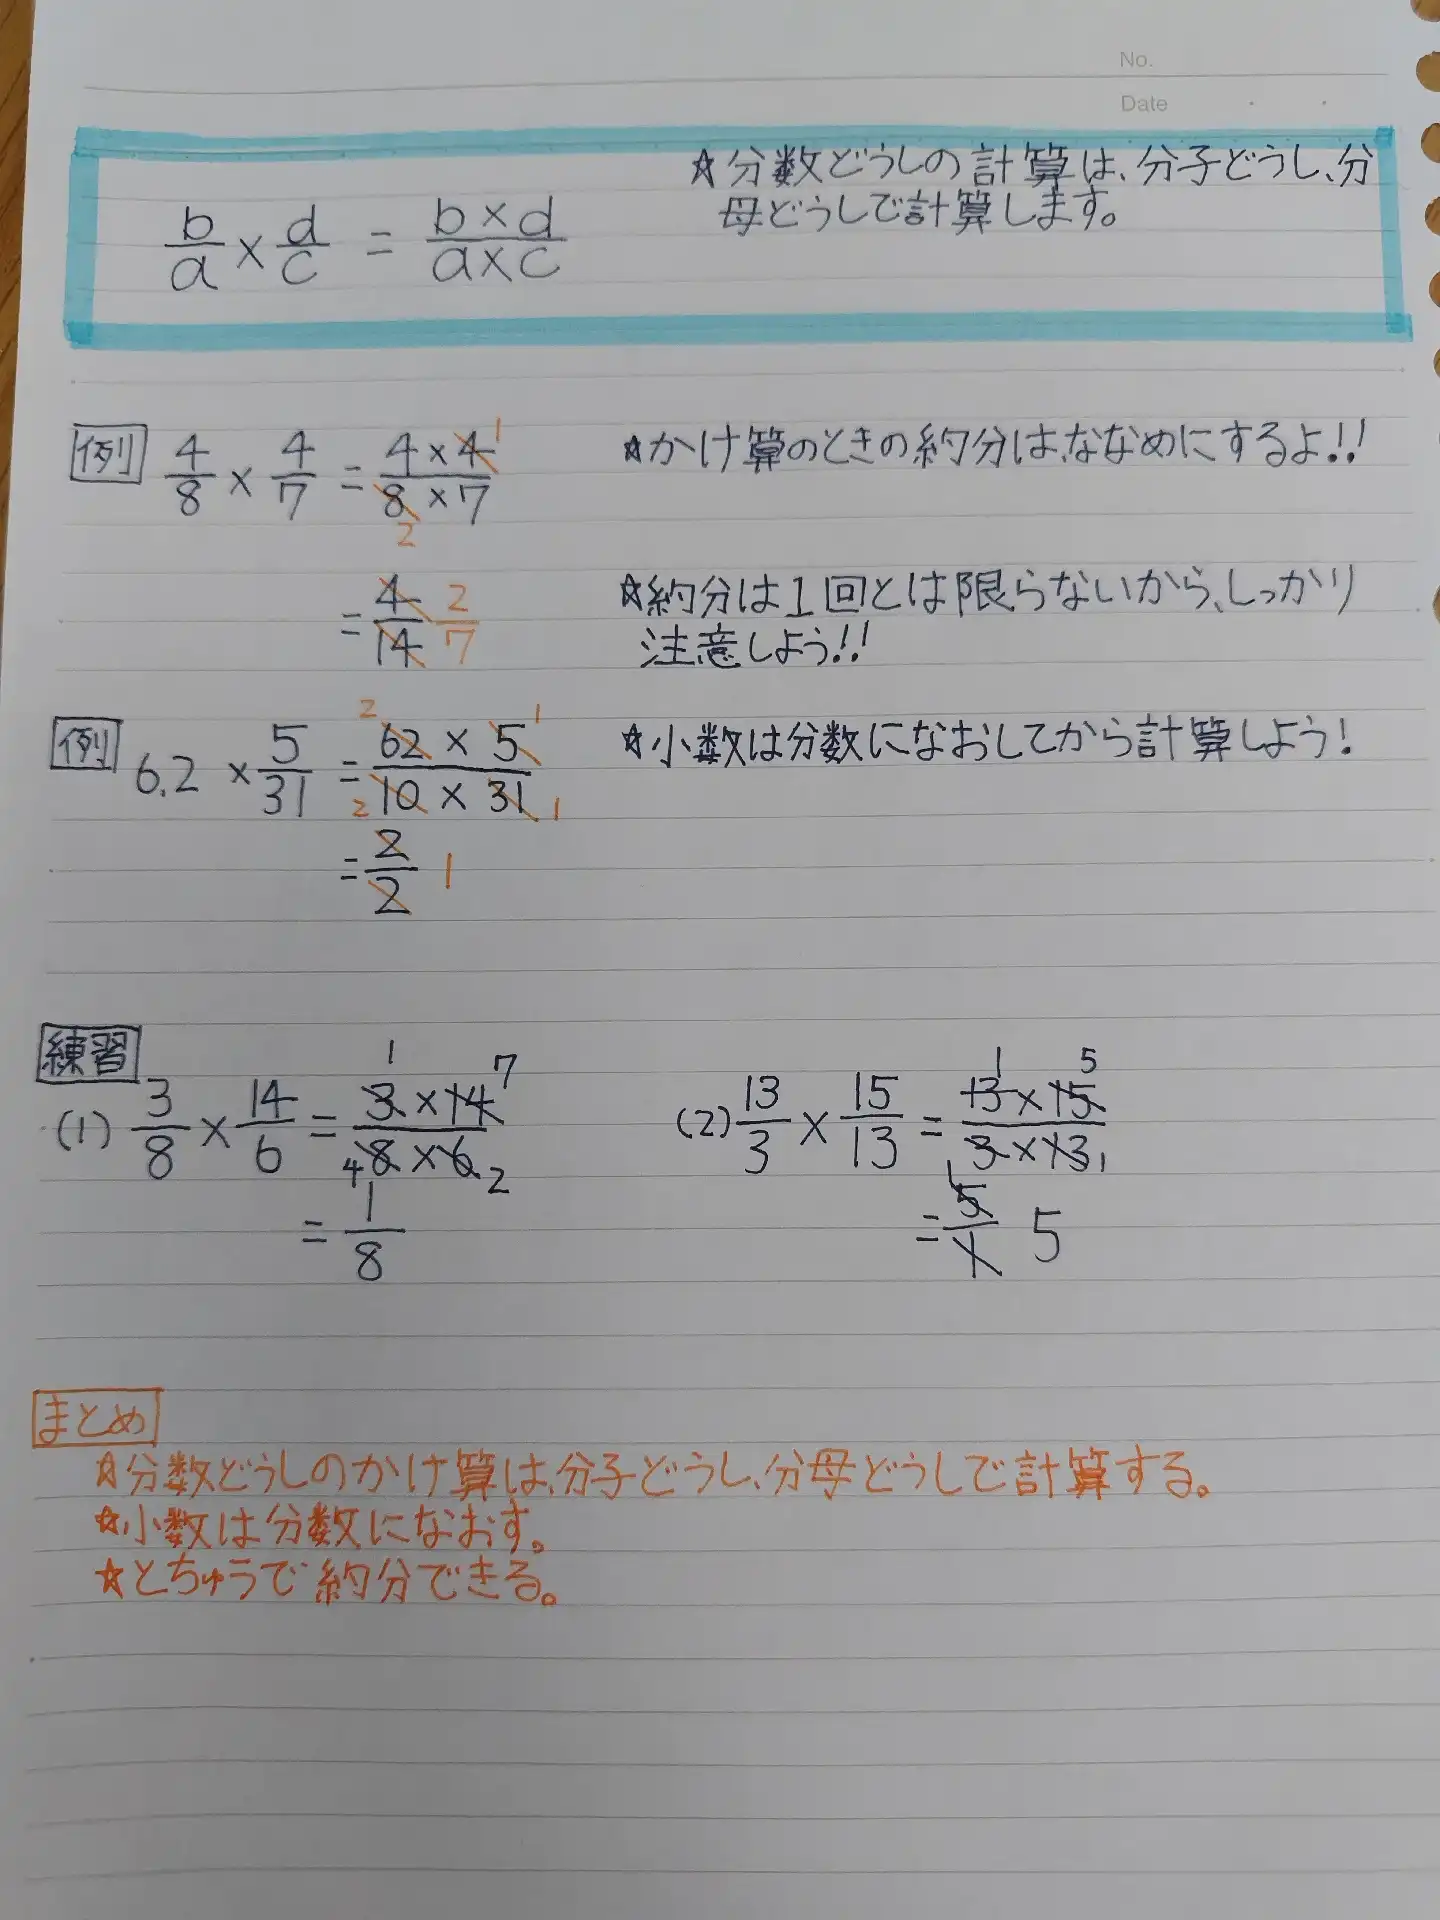 No.
Date
☆分数どうしの計算は、分子どうし、分
母どうしで計算します。
b/a × d/c = b×d/a×c
例 4/8 × 4/7 = 4×4/8×7 1 2
☆かけ算のときの約分は、ななめにするよ!!
= 4/14 2/7
☆約分は1回とは限らないから、しっかり
注意しよう!!
例 6.2 × 5/31 = 62×5/10×31 2 1 2 1
☆小数は分数になおしてから計算しよう!
= 2/2 1
練習
(1) 3/8 × 14/6 = 3×14/8×6 1 7 4 2
= 1/8
(2) 13/3 × 15/13 = 13×15/3×13 1 5 1 1
= 5/1 5
まとめ
☆分数どうしのかけ算は、分子どうし、分母どうしで計算する。
☆小数は分数になおす。
☆とちゅうで約分できる。